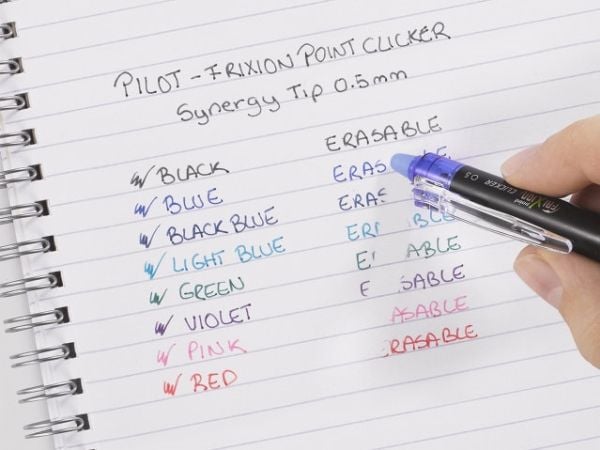 PILOT - FRIXION POINT CLICKER
Synergy Tip 0.5mm
ERASABLE
BLACK
BLUE ERAS BLE
BLACK BLUE ERAS
LIGHT BLUE ER BLE
GREEN E ABLE
VIOLET E SABLE
PINK ASABLE
RED ERASABLE
FRIXION CLICKER 0.5